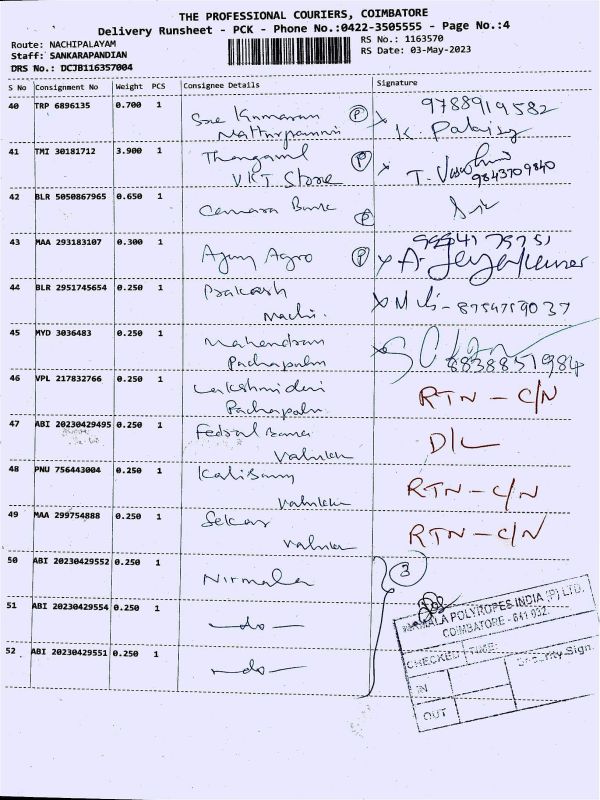 THE PROFESSIONAL COURIERS, COIMBATORE
Delivery Runsheet - PCK - Phone No.:0422-3505555 - Page No.:4
Route: NACHIPALAYAM
RS No.: 1163570
Staff: SANKARAPANDIAN
RS Date: 03-May-2023
DRS No.: DCJB116357004
S No Consignment No Weight PCS Consignee Details Signature
40 TRP 6896135 0.700 1 Sree Kumaran P 9788919582
K.
41 TMI 30181712 3.900 1 Thangavel P T.
V.K.T. Store 9843709840
42 BLR 5050867965 0.650 1 Canara Bank P
43 MAA 293183107 0.300 1 Ajay Agro P A. Jeyakumar
44 BLR 2951745654 0.250 1 Prakash
Nachi.
45 MYD 3036483 0.250 1 Mahendran
Pachapalm 8838851984
46 VPL 217832766 0.250 1 Lakshmi devi RTN - C/N
Pachapalm
47 ABI 20230429495 0.250 1 Fedral Bank D/L
48 PNU 756443004 0.250 1 Kalisamy RTN - C/N
49 MAA 299754888 0.250 1 Sekar RTN - C/N
50 ABI 20230429552 0.250 1 Nirmala 3
51 ABI 20230429554 0.250 1 -do-
52 ABI 20230429551 0.250 1 -do-
NIRMALA POLYROPES INDIA (P) LTD.
COIMBATORE - 641 032.
CHECKED TIME Security Sign.
IN
OUT